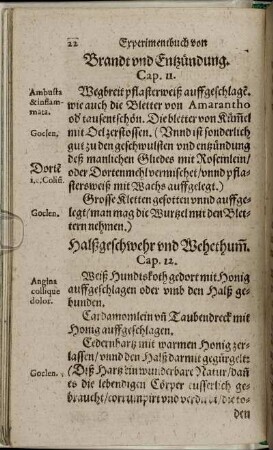 22 Experimentbuch von
Brandt vnd Entzündung.
Cap. 11.
Ambusta
& inflam-
mata.
Wegbreit pflasterweiß auffgeschlagẽ.
wie auch die Bletter von Amarantho
od tausent schön. Die bletter von Kümel
Goclen.
mit Oel zerstossen. (Vnnd ist sonderlich
gut zu den geschwulsten vnd entzündung
deß manlichen Gliedes mit Roseinlein/
Dortẽ
i.
oder Dortenmehl vermischet/vnnd pfla-
stersweiß mit Wachs auffgelegt.)
Grosse Kletten gesotten vnnd auffge-
Goclen.
legt/man mag die Wurtzel mit den Blet-
tern nehmen.)
Halßgeschwehr vnd Wehethum̃.
Cap. 12.
Angina
collique
dolor.
Weiß Hundtskoth gedort mit Honig
auffgeschlagen oder vmb den Halß ge-
bunden.
Cardamomlein vñ Taubendreck mit
Honig auffgeschlagen.
Cedernhartz mit warmen Honig zer-
lassen/vnnd den Halß darmit gegürgelt:
Goclen.
(Diß Hartz ein wunderbare Natur/dañ
es die lebendigen Cörper eusserlich ge-
braucht/corrumpirt vnd verderbt/die tod-
den